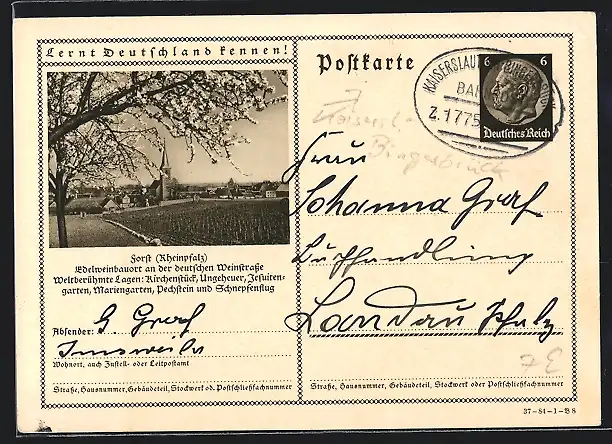 Lernt Deutschland kennen!
Postkarte
KAISERSLAUT
BAH
Z.1775
6 6
Deutsches Reich
Kaisersl.-
Bingerbrück
Frau
Johanna Graf
Buchhandlung
Landau Pfalz
7E
Forst (Rheinpfalz)
Edelweinbauort an der deutschen Weinstraße
Weltberühmte Lagen: Kirchenstück, Ungeheuer, Jesuiten-
garten, Mariengarten, Pechstein und Schnepfenflug
Absender: G. Graf
Imsweiler
Wohnort, auch Zustell- oder Leitpostamt
Straße, Hausnummer, Gebäudeteil, Stockwerk od. Postschließfachnummer
Straße, Hausnummer, Gebäudeteil, Stockwerk oder Postschließfachnummer
37-84-1-B8